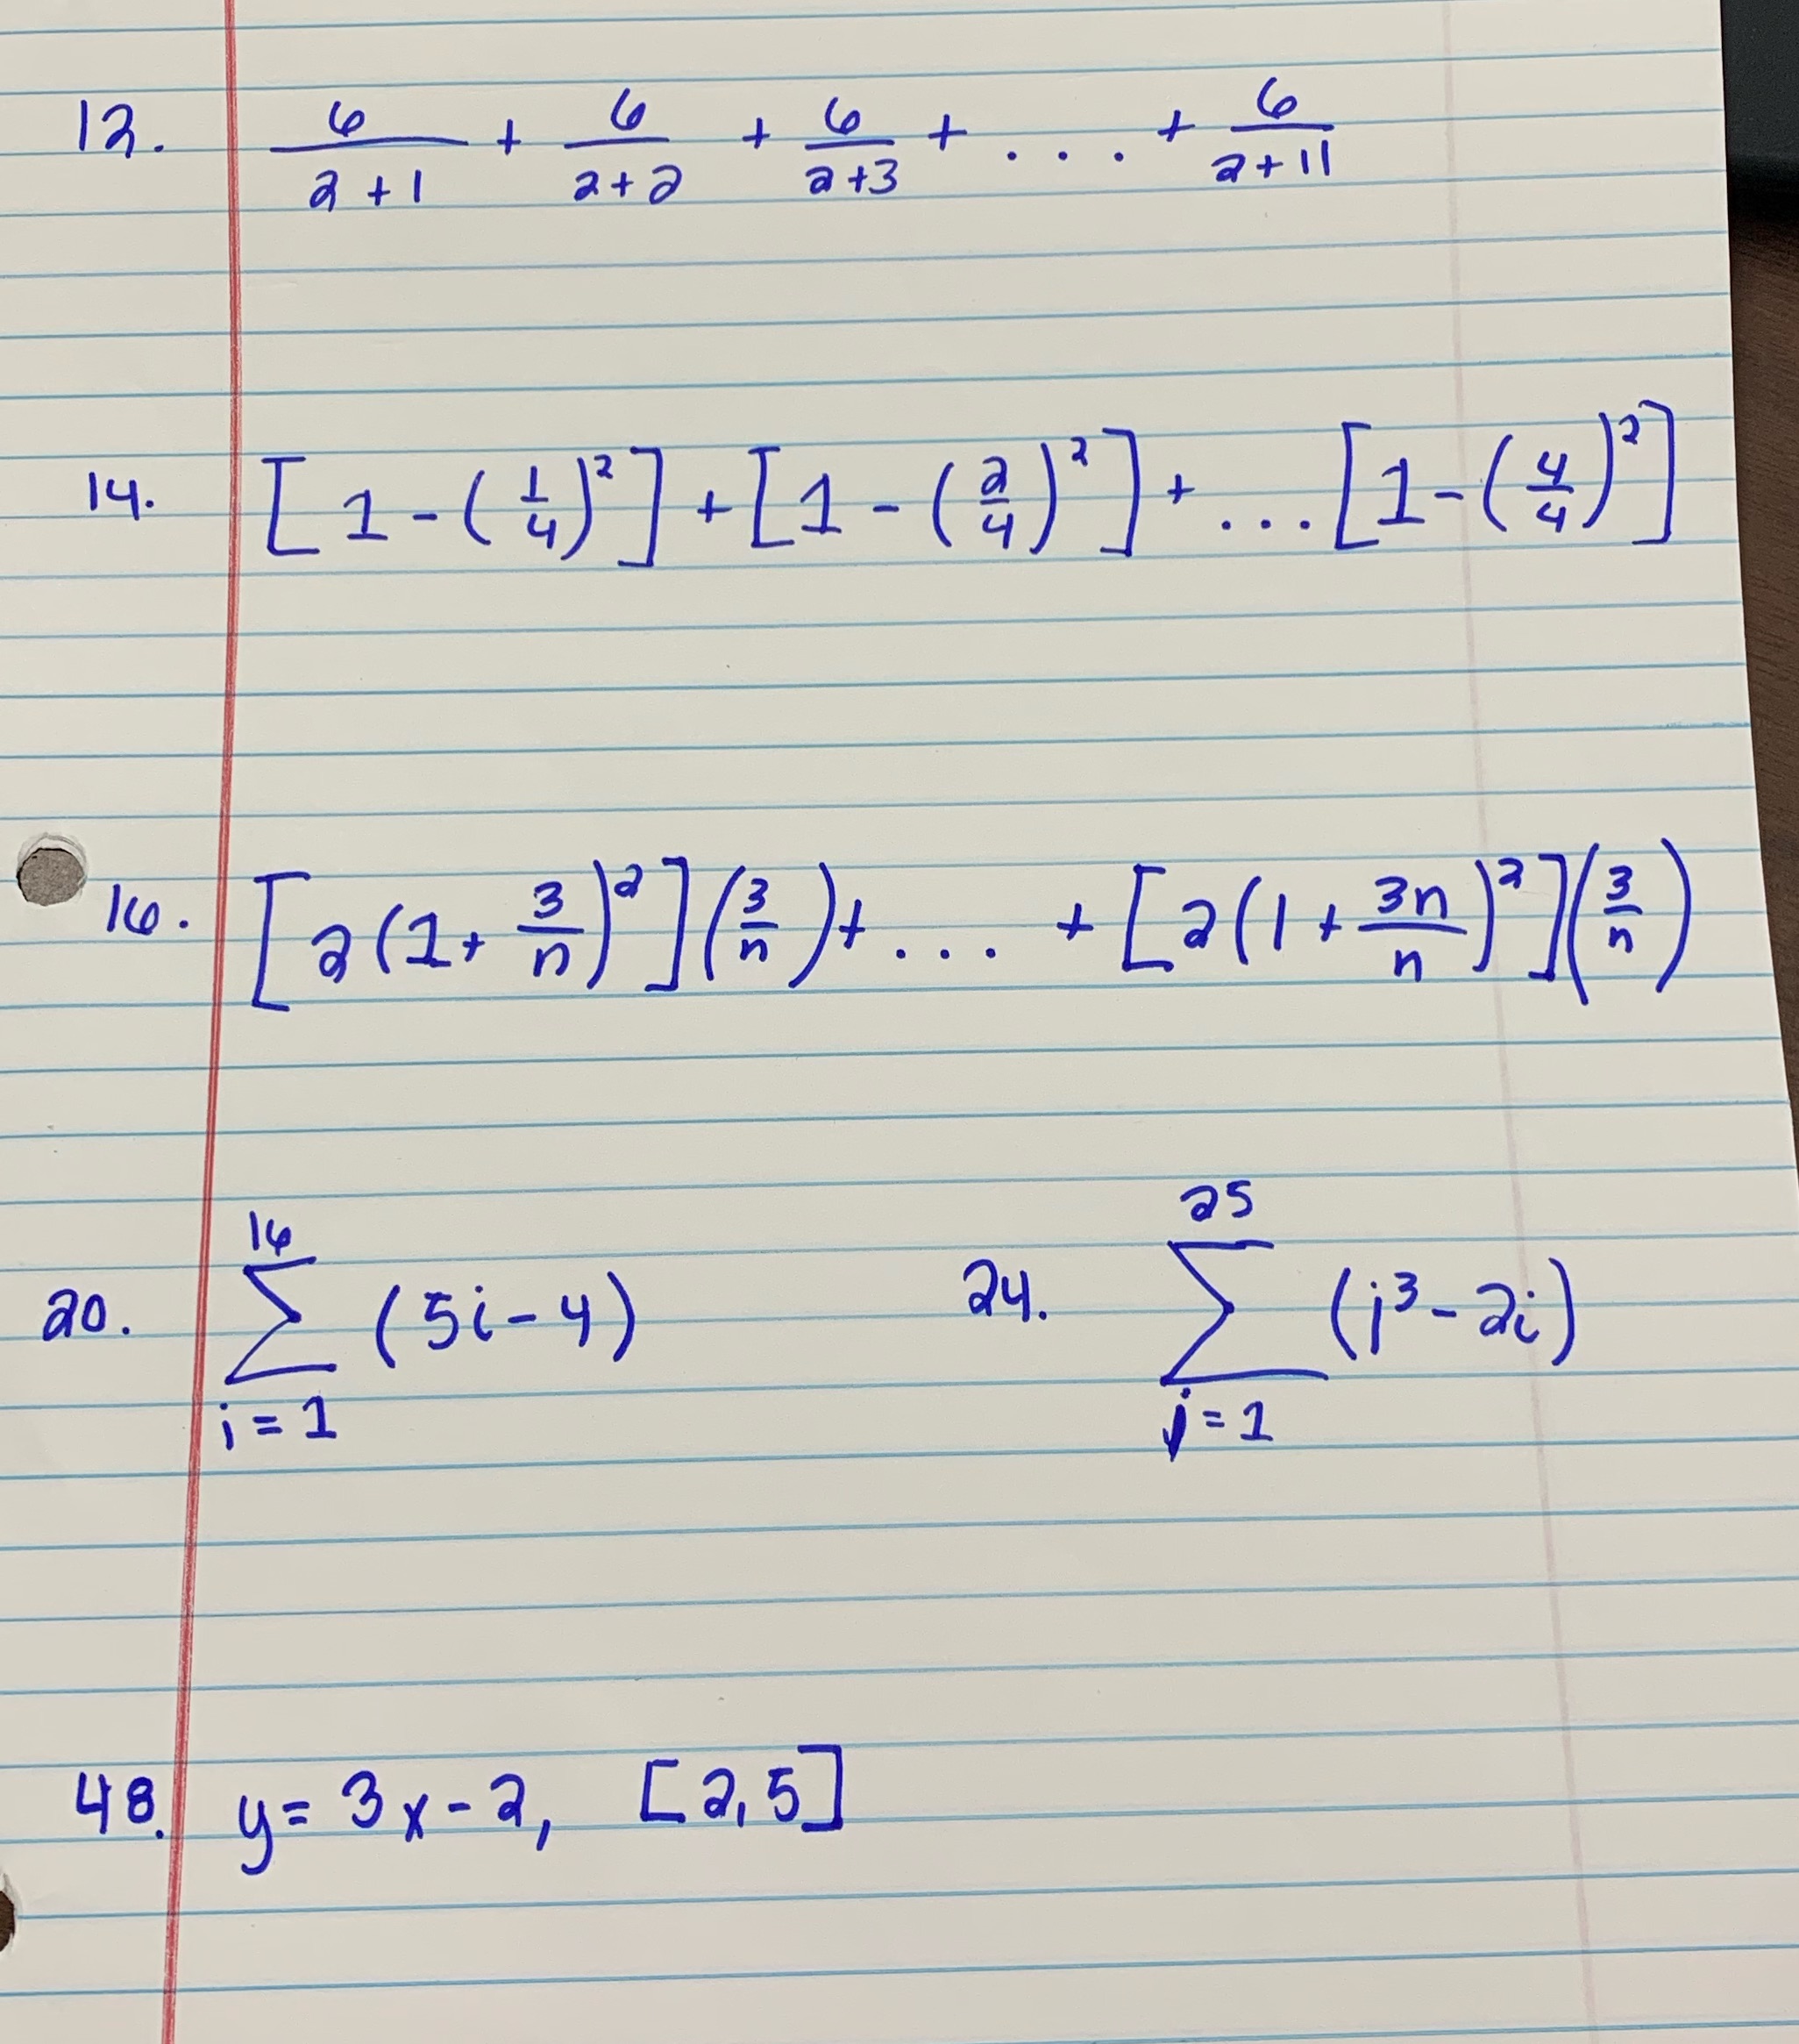 12. 6/(2+1) + 6/(2+2) + 6/(2+3) + .... + 6/(2+11)
14. [1-(1/4)²]+[1-(2/4)²]+...[1-(4/4)²]
16. [2(1+3/n)²](3/n)+.... +[2(1+3n/n)²](3/n)
20. 16∑i=1 (5i-4) 24. 25∑j=1 (j³-2i)
48. y=3x-2, [2,5]